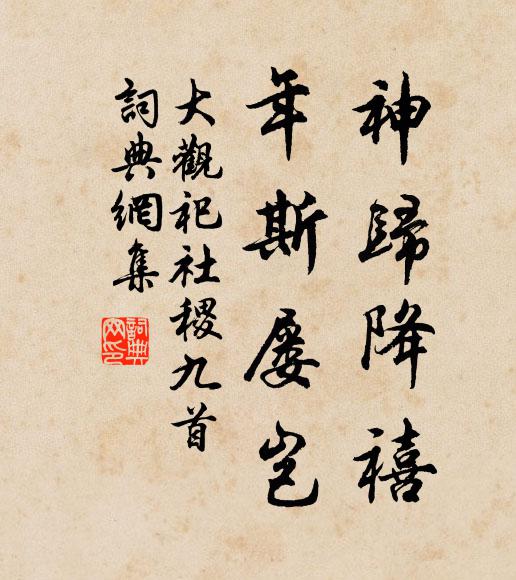 神歸降禧
年斯屢岂
大觀祀社稷九首
詞典網集
詞典
网印